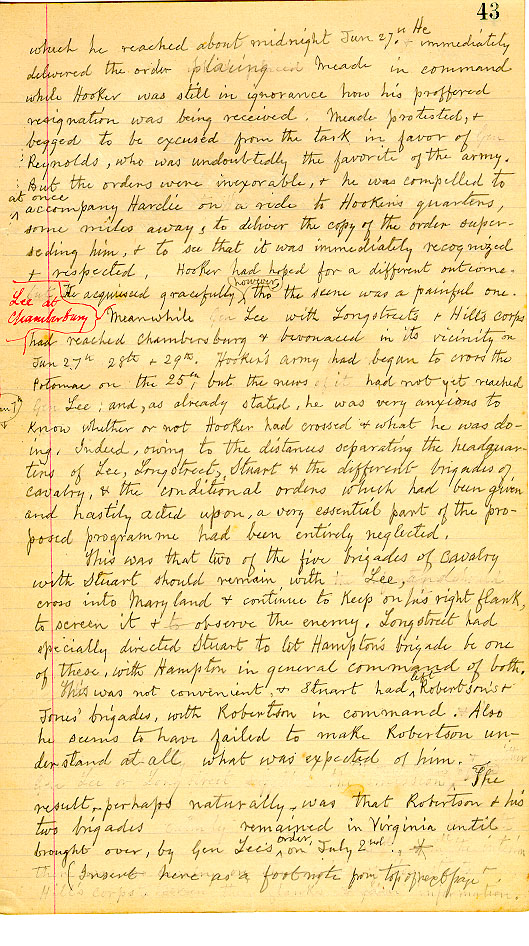 43
which he reached about midnight Jun 27.th He immediately
delivered the order placing Meade in command
while Hooker was still in ignorance how his proffered
resignation was being received. Meade protested, &
begged to be excused from the task in favor of Gen
Reynolds, who was undoubtedly the favorite of the army.
But the orders were inexorable, & he was compelled to
at once
accompany Hardie on a ride to Hooker's quarters,
some miles away, to deliver the copy of the order super-
seding him, & to see that it was immediately recognized
& respected. Hooker had hoped for a different outcome.
He acquiesced gracefully, however, tho the scene was a painful one.
Lee at
Chambersburg
Meanwhile Gen Lee with Longstreets & Hills corps
had reached Chambersburg & bivouaced in its vicinity on
Jun 27th 28th & 29th. Hooker's army had began to cross the
Potomac on the 25th, but the news of it had not yet reached
Gen Lee; and, as already stated, he was very anxious to
know whether or not Hooker had crossed & what he was do-
ing. Indeed, owing to the distances separating the headquar-
ters of Lee, Longstreet, Stuart & the different brigades of
cavalry, & the conditional orders which had been given
and hastily acted upon, a very essential part of the pro-
posed programme had been entirely neglected.
This was that two of the five brigades of cavalry
with Stuart should remain with Lee,
cross into Maryland & continue to keep on his right flank,
to screen it & to observe the enemy. Longstreet had
specially directed Stuart to let Hampton's brigade be one
of these, with Hampton in general command of both.
This was not convenient, & Stuart had left Robertson's &
Jones' brigades, with Robertson in command. Also
he seems to have failed to make Robertson un-
derstand at all what was expected of him.
The
result, perhaps naturally, was that Robertson & his
two brigades remained in Virginia until
brought over, by Gen Lee's order, on July 2nd. *
(Insert here as a footnote from top of next page